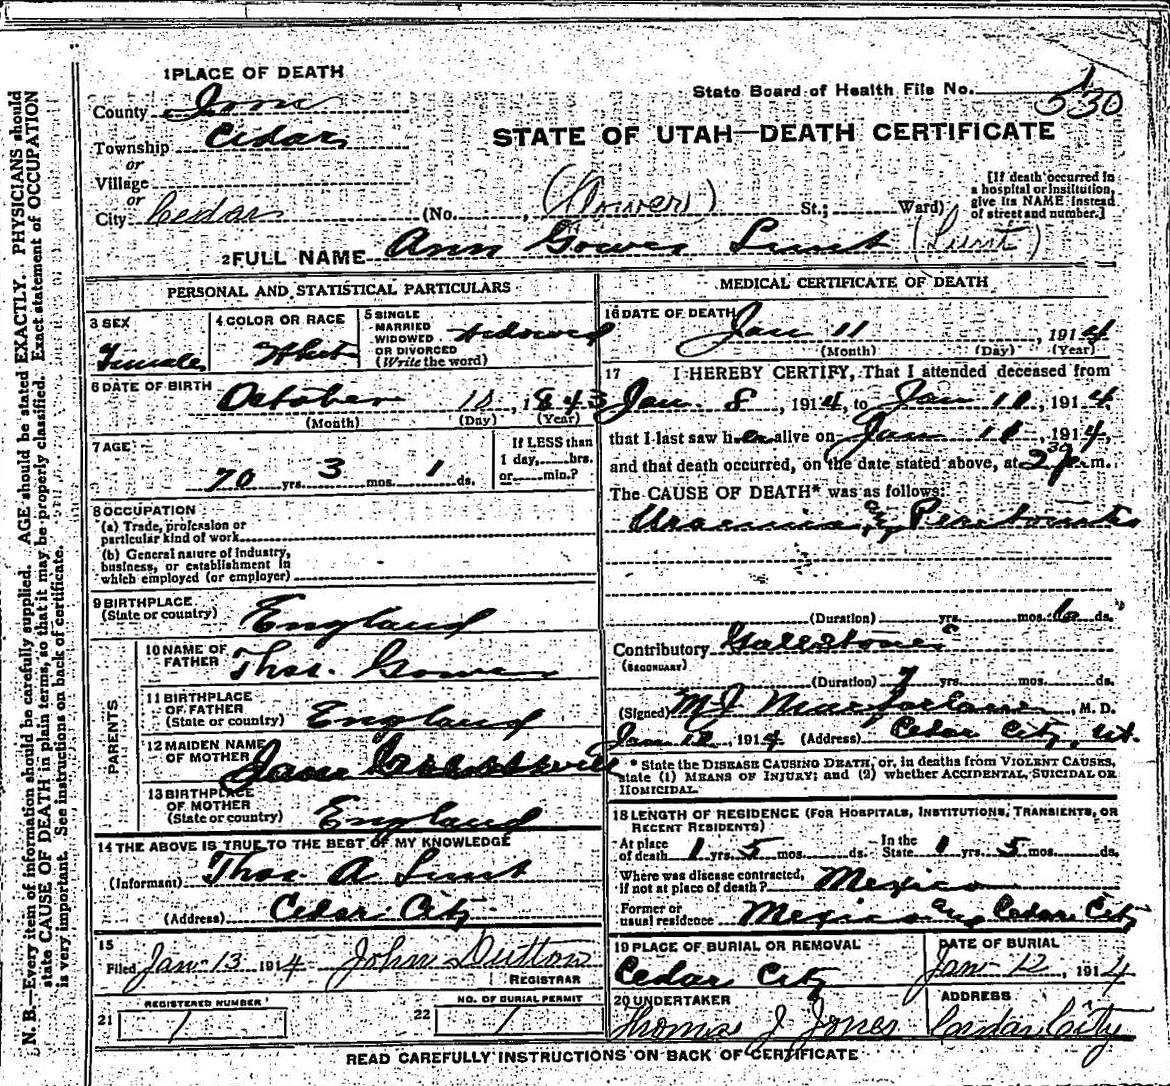 1 PLACE OF DEATH
County Iron
State Board of Health File No. 530
Township Cedar
or
STATE OF UTAH—DEATH CERTIFICATE
Village
or
City Cedar (No. , (Gower) St.; Ward)
[If death occurred in
a hospital or institution,
give its NAME instead
of street and number.]
2 FULL NAME Ann Gower Lunt (Lunt)
PERSONAL AND STATISTICAL PARTICULARS
3 SEX
Female
4 COLOR OR RACE
White
5 SINGLE
MARRIED
WIDOWED
OR DIVORCED
(Write the word)
Widowed
6 DATE OF BIRTH
October 10, 1843
(Month) (Day) (Year)
7 AGE
70 yrs. 3 mos. 1 ds.
If LESS than
1 day, hrs.
or min.?
8 OCCUPATION
(a) Trade, profession or
particular kind of work
(b) General nature of industry,
business, or establishment in
which employed (or employer)
9 BIRTHPLACE
(State or country) England
PARENTS
10 NAME OF
FATHER Thos. Gower
11 BIRTHPLACE
OF FATHER
(State or country) England
12 MAIDEN NAME
OF MOTHER Jane
13 BIRTHPLACE
OF MOTHER
(State or country) England
14 THE ABOVE IS TRUE TO THE BEST OF MY KNOWLEDGE
(Informant) Thos. A Lunt
(Address) Cedar City
15
Filed Jan 13 1914 John Dutton
REGISTRAR
REGISTERED NUMBER
21 1
NO. OF BURIAL PERMIT
22 1
MEDICAL CERTIFICATE OF DEATH
16 DATE OF DEATH
Jan 11, 1914
(Month) (Day) (Year)
17 I HEREBY CERTIFY, That I attended deceased from
Jan. 8, 1914, to Jan 11, 1914,
that I last saw her alive on Jan 11, 1914,
and that death occurred, on the date stated above, at 2 30 p.m.
The CAUSE OF DEATH* was as follows:
Uraemia and Peritonitis
(Duration) yrs. mos. 6 ds.
Contributory Gallstones
(SECONDARY)
(Duration) 7 yrs. mos. ds.
(Signed) M J Macfarlane, M. D.
Jan 12, 1914 (Address) Cedar City, Ut.
* State the DISEASE CAUSING DEATH, or, in deaths from VIOLENT CAUSES,
state (1) MEANS OF INJURY; and (2) whether ACCIDENTAL, SUICIDAL OR
HOMICIDAL.
18 LENGTH OF RESIDENCE (FOR HOSPITALS, INSTITUTIONS, TRANSIENTS, OR
RECENT RESIDENTS)
At place
of death 1 yrs. 5 mos. ds.
In the
State 1 yrs. 5 mos. ds.
Where was disease contracted,
if not at place of death? Mexico
Former or
usual residence Mexico and Cedar City
19 PLACE OF BURIAL OR REMOVAL
Cedar City
DATE OF BURIAL
Jan 12, 1914
20 UNDERTAKER
Thomas J Jones
ADDRESS
Cedar City
READ CAREFULLY INSTRUCTIONS ON BACK OF CERTIFICATE
N. B.—Every item of information should be carefully supplied. AGE should be stated EXACTLY. PHYSICIANS should
state CAUSE OF DEATH in plain terms, so that it may be properly classified. Exact statement of OCCUPATION
is very important. See instructions on back of certificate.